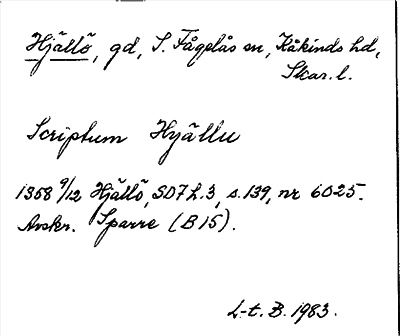 Hjällö, gd, S. Fågelås sn, Kåkinds hd,
Skar. l.
Scriptum Hyällu
1358 9/12 Hjällö, SD7 h.3, s. 139, nr 6025.
Avskr. Sparre (B 15).
L-t. B. 1983.